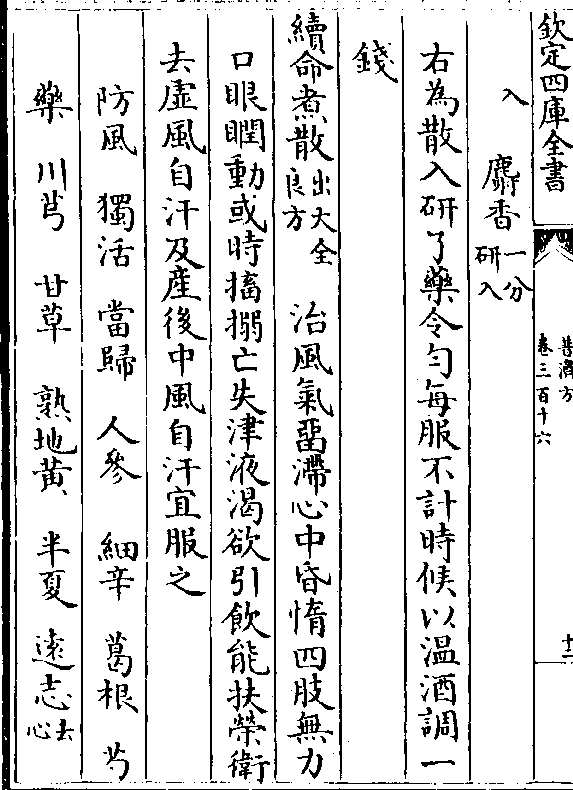 欽定四庫全書
普濟方
卷三百十六
十二
入　麝香一分研入
右為散入研了藥令勻每服不計時候以温酒調一
錢
續命煮散出大全良方　治風氣留滯心中昏惰四肢無力
口眼瞤動或時搐搦亡失津液渴欲引飲能扶榮衛
去虛風自汗及產後中風自汗宜服之
防風　獨活　當歸　人參　細辛　葛根　芍
藥　川芎　甘草　熟地黃　半夏　遠志去心